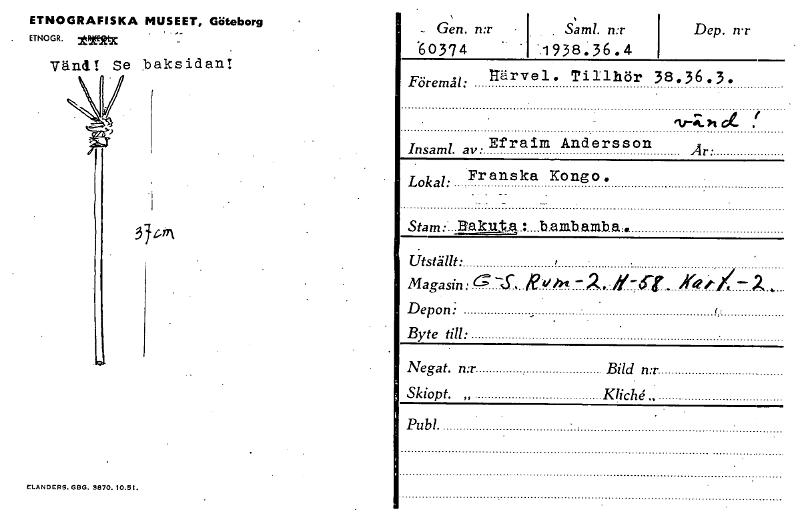 ETNOGRAFISKA MUSEET, Göteborg
ETNOGR.
Vänd! Se baksidan!
37cm
ELANDERS. GBG. 3870. 10.51.
Gen. n:r Saml. n:r Dep. n:r
60374 1938.36.4
Föremål: Härvel. Tillhör 38.36.3.
vänd!
Insaml. av: Efraim Andersson År:
Lokal: Franska Kongo.
Stam: Bakuta: bambamba.
Utställt:
Magasin: G-S. Rum-2. H-58. Kart.-2.
Depon:
Byte till:
Negat. n:r Bild n:r
Skiopt. „ Kliché „
Publ.